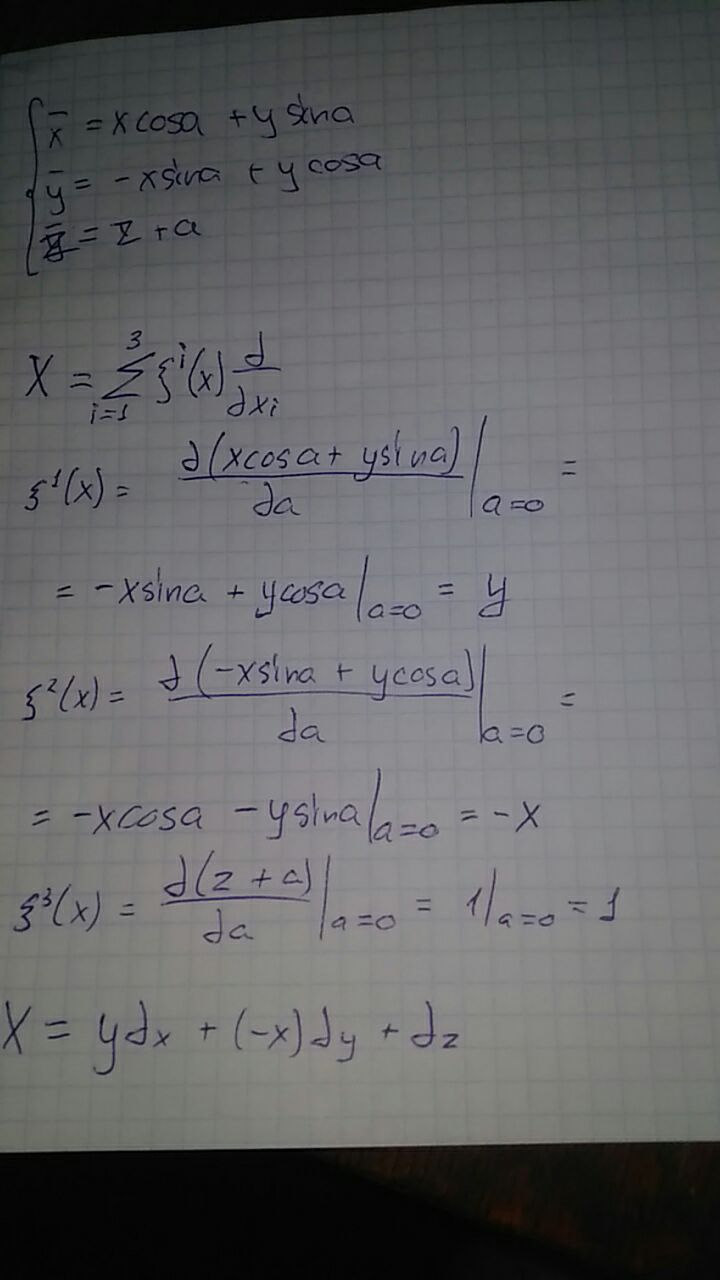 x̄ = x cosa + y sina
ȳ = -x sina + y cosa
z̄ = z + a
X = ∑ᵢ₌₁³ ξⁱ(x) ∂/∂xᵢ
ξ¹(x) = ∂(x cosa + y sina)/∂a |ₐ₌₀ =
= -x sina + y cosa |ₐ₌₀ = y
ξ²(x) = ∂(-x sina + y cosa)/∂a |ₐ₌₀ =
= -x cosa - y sina |ₐ₌₀ = -x
ξ³(x) = ∂(z + a)/∂a |ₐ₌₀ = 1|ₐ₌₀ = 1
X = y∂x + (-x)∂y + ∂z